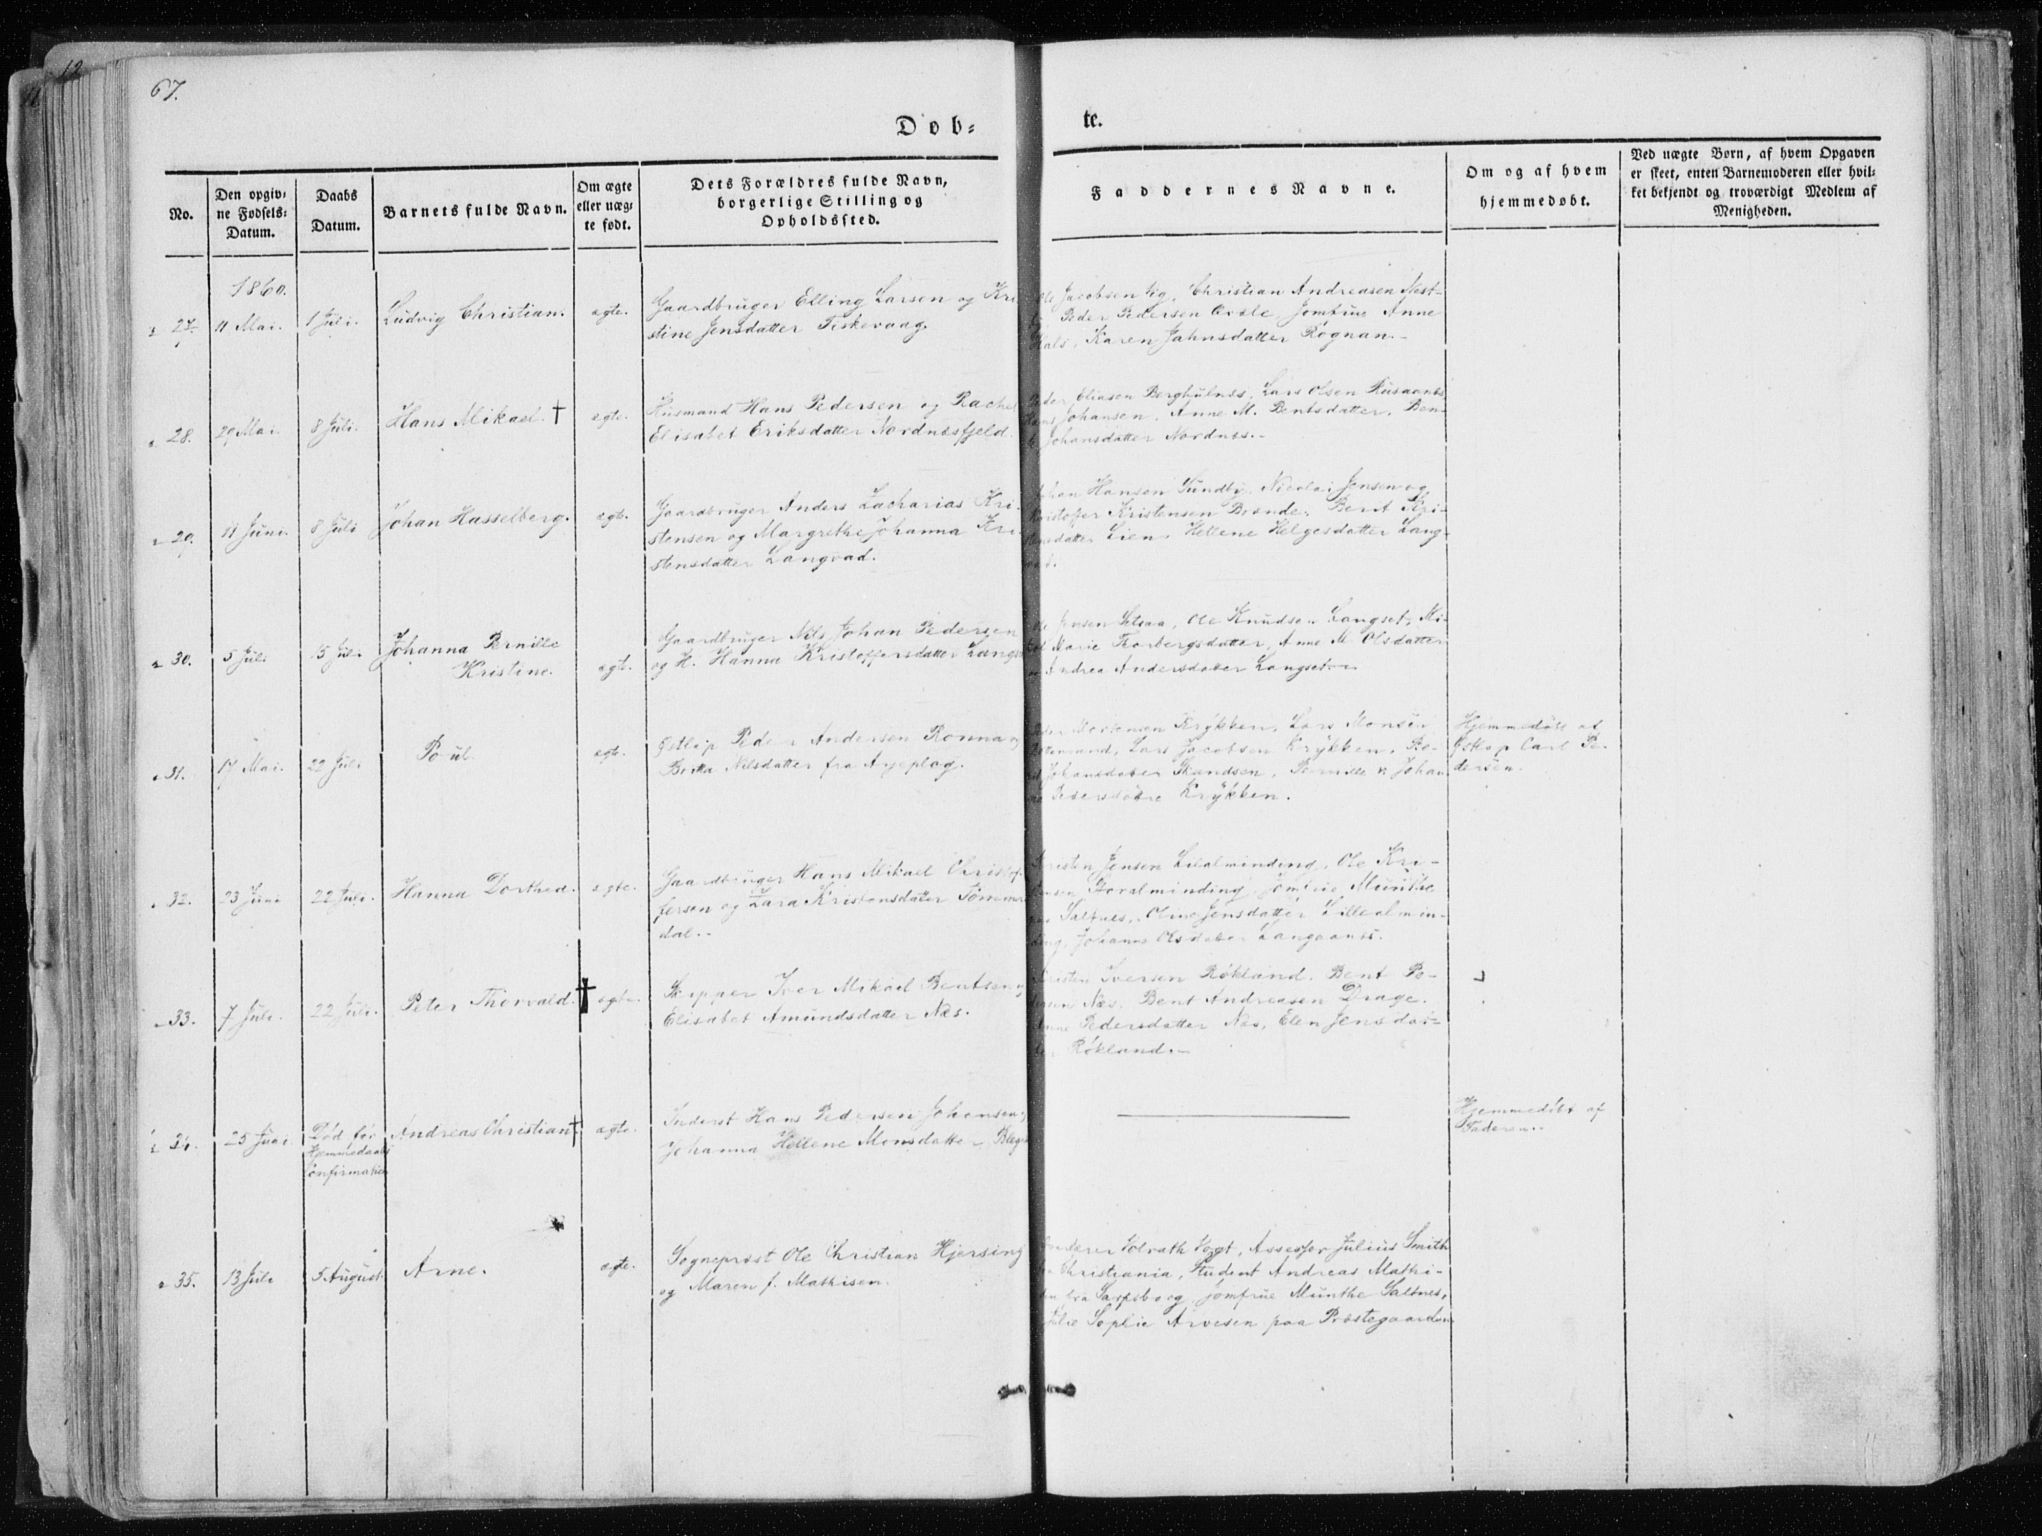 67.
Døb=
te.
No.
Den opgiv=
ne Fødsels=
Datum.
Daabs
Datum.
Barnets fulde Navn.
Om ægte
eller uæg=
te født.
Dets Forældres fulde Navn,
borgerlige Stilling og
Opholdssted.
Faddernes Navne.
Om og af hvem
hjemmedøbt.
Ved uægte Børn, af hvem Opgaven
er skeet, enten Barnemoderen eller hvil=
ket bekjendt og troværdigt Medlem af
Menigheden.
1860.
27. 11 Mai. 1 Juli. Ludvig Christian. ægte.
Gaardbruger Elling Larsen og Kri
stine Jensdatter Fiskevaag.
Jacobsen Vig, Christian Andreasen Nest-
Peder Pedersen Jomfrue Anne
Hals, Karen Jahnsdatter Rognan.
28. 20 Mai. 8 Juli. Hans Mikael. † ægte.
Husmand Hans Pedersen og Rachel
Elisabet Eriksdatter Nordnæsfjeld.
Eliasen Berghulnes, Lars Olsen
Hans Johansen, Anne M. Bentsdatter, Ben-
Johansdatter Nordnæs.
29. 11 Juni. 8 Juli Johan Hasselberg. ægte.
Gaardbruger Anders Zacharias Kri-
stensen og Margrethe Johanna Kri-
stensdatter Langvad.
Johan Hansen Sundby, Nicolai Jensen og
Kristoffer Kristensen Brænde, Berit Kri-
Lien, Hellene Helgesdatter Lang-
30. 5 Juli 15 Juli Johanna Pernille
Kristine. ægte.
Gaardbruger Nils Johan Pedersen
og H. Hanna Kristoffersdatter Langs
Jensen Setsaa, Ole Knudsen Langset, Mi-
Marie Thorbergsdatter, Anne M Olsdatter
Andrea Andersdatter Langset
31. 17 Mai. 22 Juli Poul ægte.
Østlap Peder Andersen Ronna og
Berta Nilsdatter fra Arjeplog.
Mortensen Krykken, Lars Monsen
Lars Jacobsen Krykken, Be-
Johansdatter Skandsen, Pernille & Johan
Pedersdøtre Krykken.
Hjemmedøbt af
Østlap Carl Pe-
dersen.
32. 23 Juni 22 Juli. Hanna Dorthea. ægte.
Gaardbruger Hans Mikael Christof
fersen og Lara Kristensdatter Tømmer
dal.
Kristen Jensen Lilalminding, Ole Kri-
Storalminding, Jomfrue Munthe
Saltnes, Oline Jensdatter Lillealmin-
ding, Johanna Olsdatter Langaanes.
33. 7 Juli. 22 Juli. Peter Thorvald. † ægte.
Skipper Iver Mikael Bentsen og
Elisabet Amundsdatter Næs.
Kristen Iversen Røkland. Bent Pe-
dersen Næs, Bent Andreasen Drage.
Pedersdatter Næs, Elen Jensdat-
ter Røkland.
34. 25 Juni. Død før
Hjemmedaabs
Confirmation Andreas Christian † ægte.
Inderst Hans Pedersen Johansen
Johanna Hellene Monsdatter
Hjemmedøbt af
Faderen.
35. 13 Juli 5 August. Arne. ægte.
Sognepræst Ole Christian Hjersing
og Maren f. Mathisen.
Volrath Vogt, Assessor Julius Smith
Christiania, Student Andreas Mathi-
sen fra Sarpsborg, Jomfrue Munthe Saltnes,
Julie Sophie Arvesen paa Præstegaarden